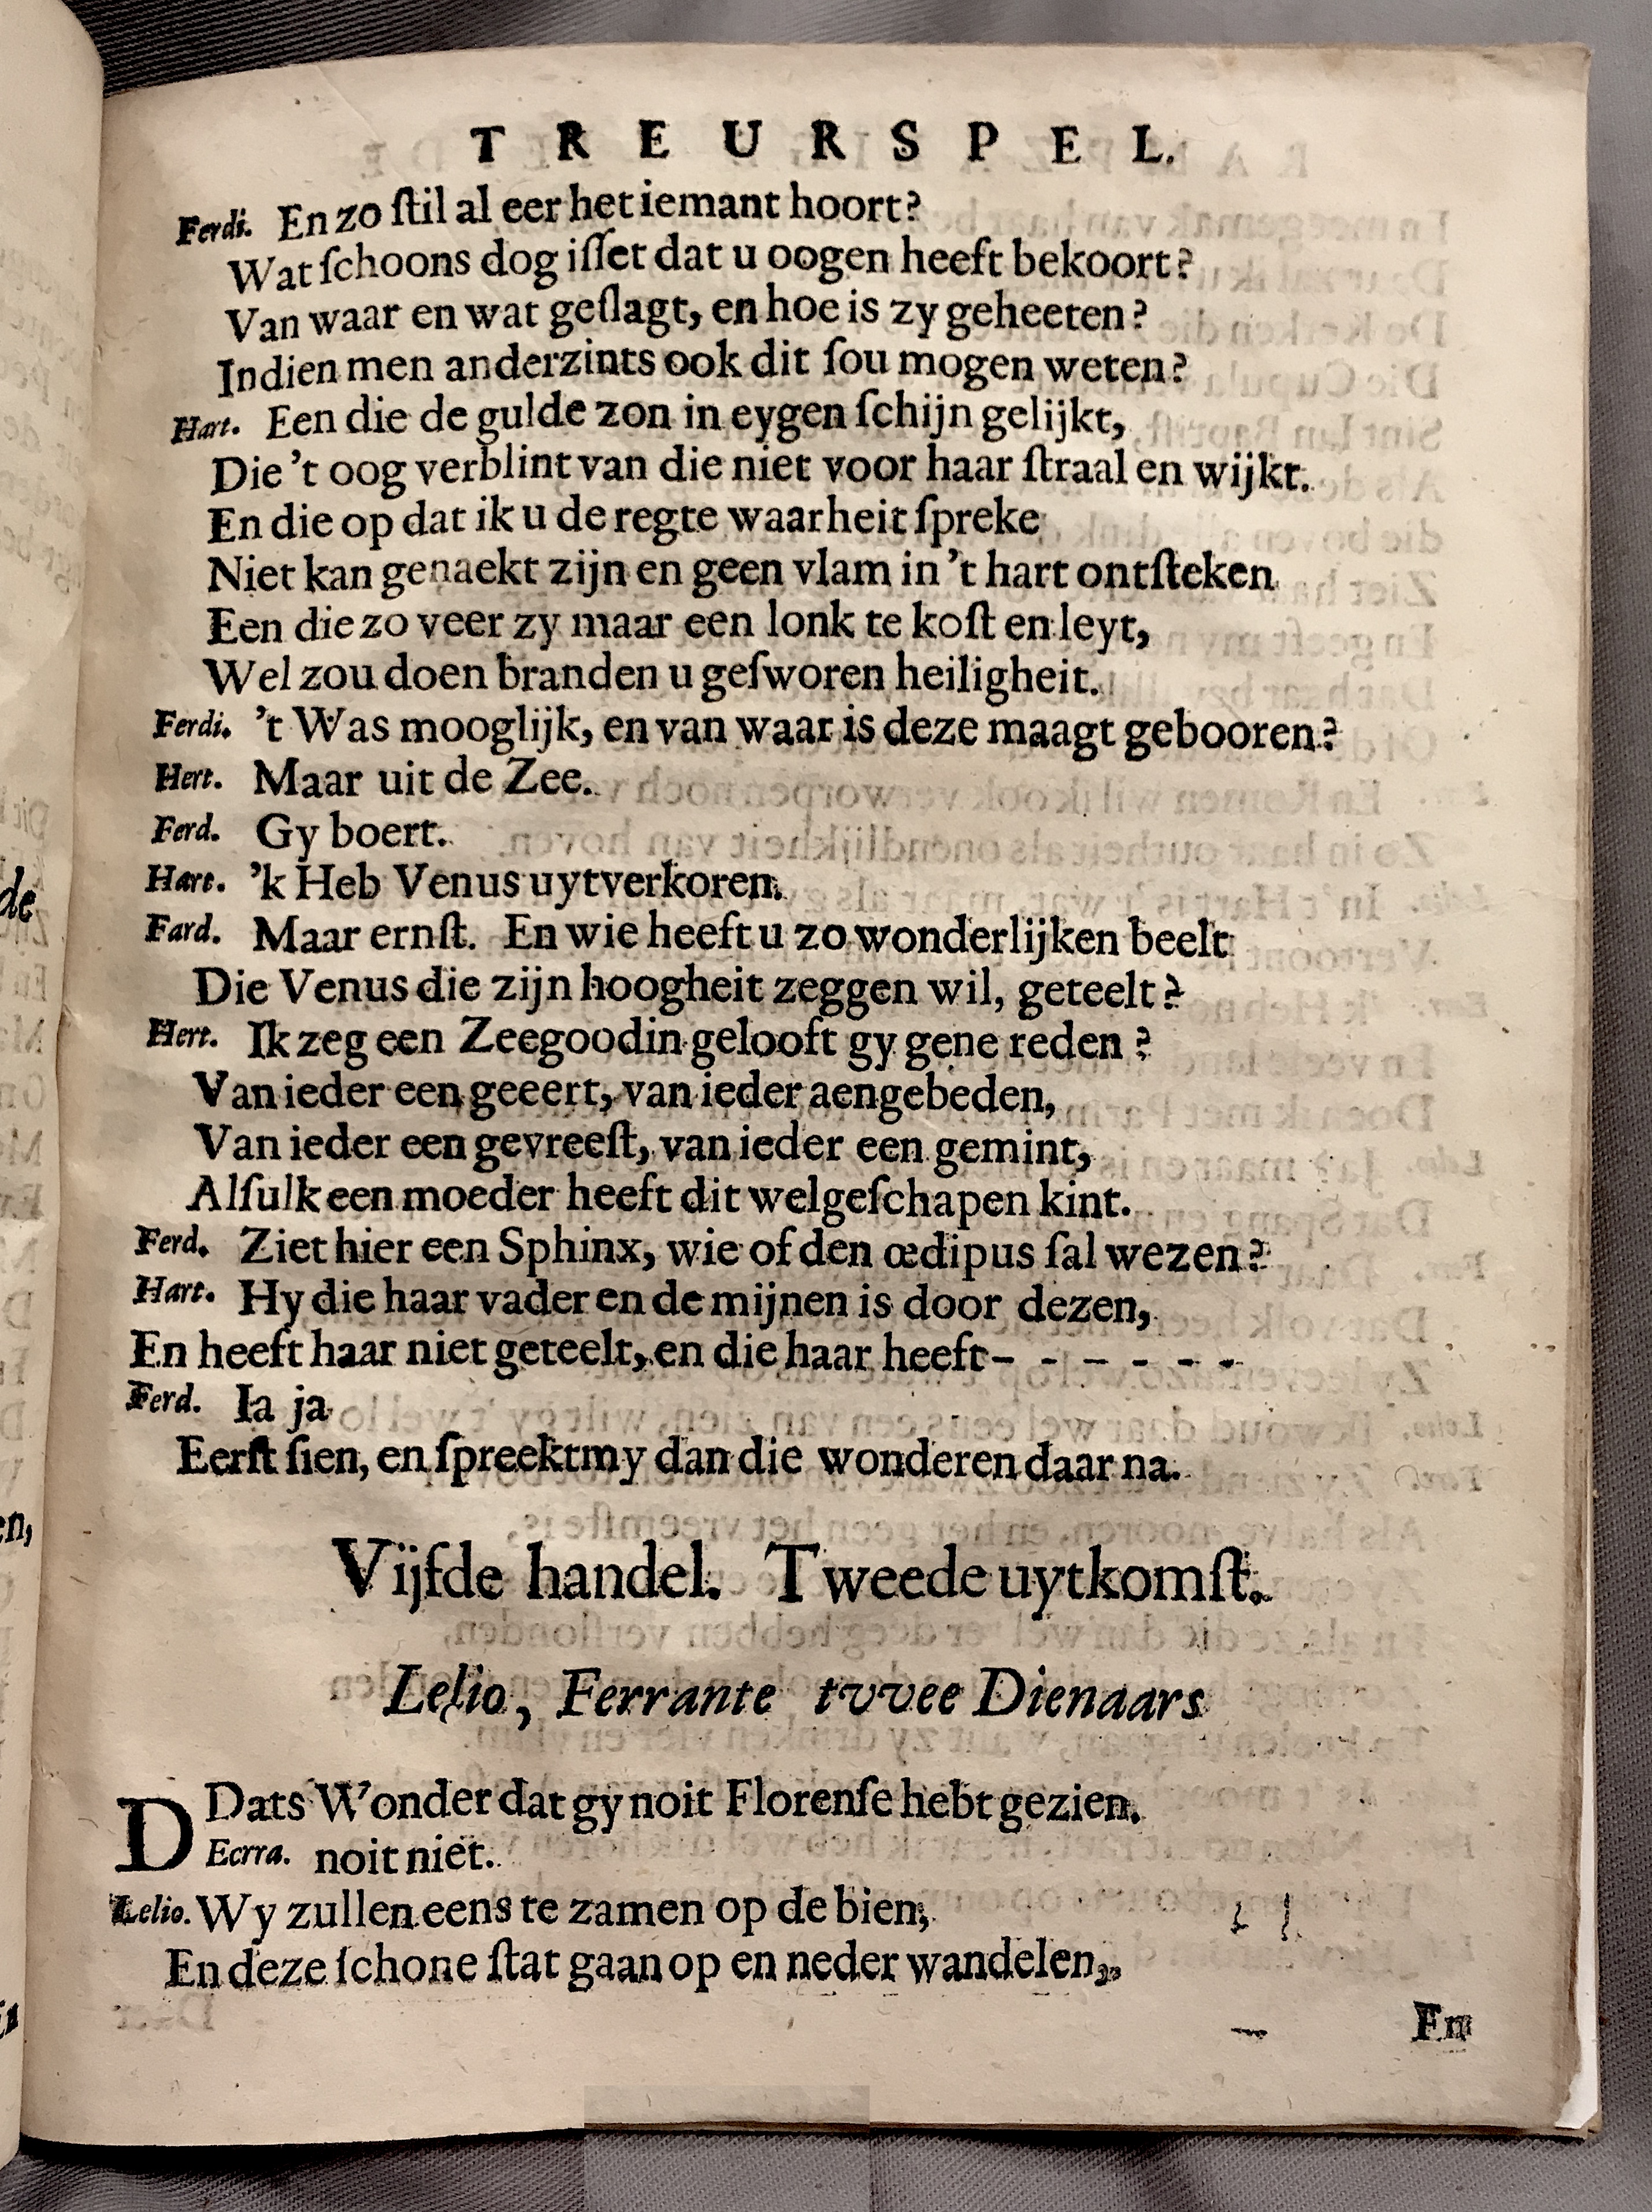 TREURSPEL.
Ferdi. En zo ſtil al eer het iemant hoort?
Wat ſchoons dog iſſet dat u oogen heeft bekoort?
Van waar en wat geſlagt, en hoe is zy geheeten?
Indien men anderzints ook dit ſou mogen weten?
Hart. Een die de gulde zon in eygen ſchijn gelijkt,
Die 't oog verblint van die niet voor haar ſtraal en wijkt.
En die op dat ik u de regte waarheit ſpreke
Niet kan genaekt zijn en geen vlam in 't hart ontſteken
Een die zo veer zy maar een lonk te koſt en leyt,
Wel zou doen branden u geſworen heiligheit.
Ferdi. 't Was mooglijk, en van waar is deze maagt gebooren?
Hert. Maar uit de Zee.
Ferd. Gy boert.
Hart. 'k Heb Venus uytverkoren.
Fard. Maar ernſt. En wie heeft u zo wonderlijken beelt
Die Venus die zijn hoogheit zeggen wil, geteelt?
Hert. Ik zeg een Zeegoodin gelooft gy gene reden?
Van ieder een geeert, van ieder aengebeden,
Van ieder een gevreeſt, van ieder een gemint,
Alſulk een moeder heeft dit welgeſchapen kint.
Ferd. Ziet hier een Sphinx, wie of den œdipus ſal wezen?
Hart. Hy die haar vader en de mijnen is door dezen,
En heeft haar niet geteelt, en die haar heeft- - - - - -
Ferd. Ia ja
Eerſt ſien, en ſpreekt my dan die wonderen daar na.
Vijfde handel. Tweede uytkomſt.
Lelio, Ferrante tvvee Dienaars
DDats Wonder dat gy noit Florenſe hebt gezien.
Ecrra. noit niet.
Lelio. Wy zullen eens te zamen op de bien,
En deze ſchone ſtat gaan op en neder wandelen,
En
de
en,